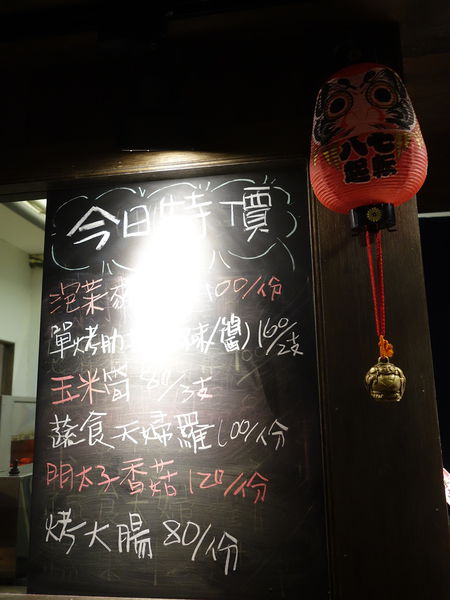 今日特價
泡菜 100/份
單烤肋 味/醬) 160/2支
玉米筍 80/3支
蔬食天婦羅 100/份
明太子香菇 120/份
烤大腸 80/份
七転
八起